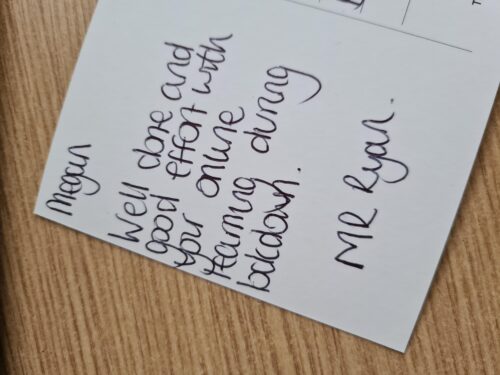 Megan
Well done and
good effort with
your online
learning during
lockdown.
MR Ryan.